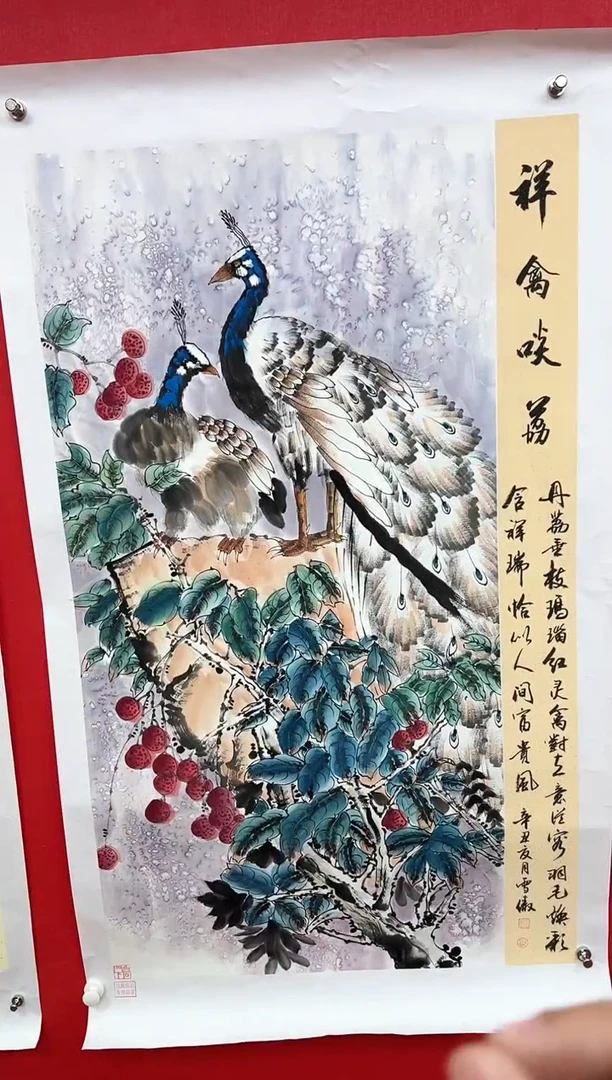 祥禽啖荔
丹荔垂枝瑪瑙红灵禽對立意從容羽毛焕彩
含祥瑞恰似人间富贵風 辛丑夏月雪傲